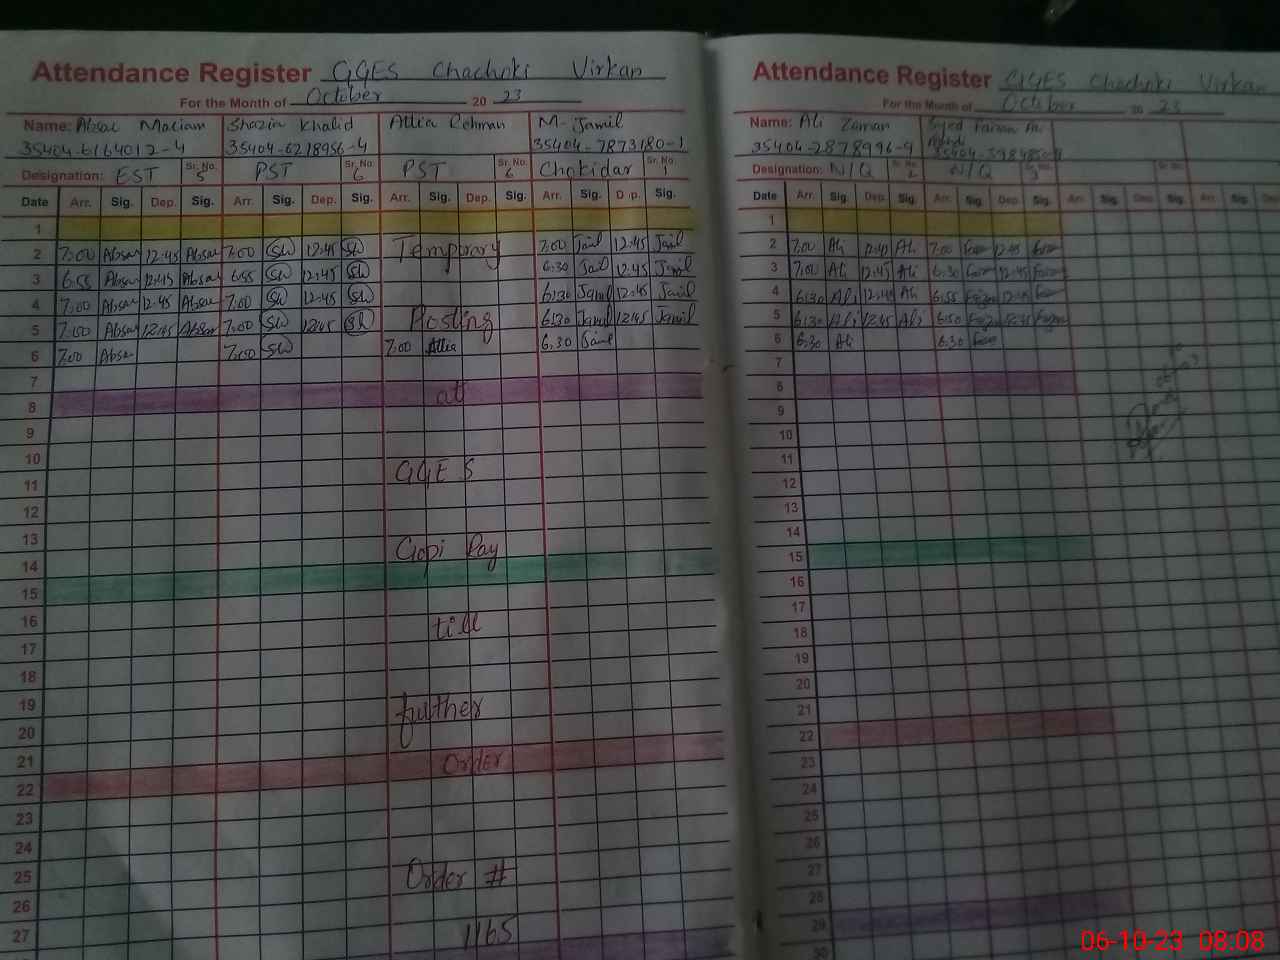 Attendance Register GGES Chachoki Virkan
For the Month of October 20 23
Name: Absar Mariam Shazia Khalid Attia Rehman M. Jamil
35404-6164012-4 35404-6218956-4 35404-7873180-1
Designation: EST Sr. No. 5 PST Sr. No. 6 PST Sr. No. 6 Chokidar Sr. No. 1
Date Arr. Sig. Dep. Sig. Arr. Sig. Dep. Sig. Arr. Sig. Dep. Sig. Arr. Sig. Dep. Sig.
1
2 7:00 Absar 12:45 Absar 7:00 SW 12:45 SW Temporary 7:00 Jamil 12:45 Jamil
3 6:55 Absar 12:45 Absar 6:55 SW 12:45 SW 6:30 Jamil 12:45 Jamil
4 7:00 Absar 12:45 Absar 7:00 SW 12:45 SW 6:30 Jamil 12:45 Jamil
5 7:00 Absar 12:45 Absar 7:00 SW 12:45 SW Posting 6:30 Jamil 12:45 Jamil
6 7:00 Absar 7:00 SW 7:00 Attia 6:30 Jamil
7
8 at
9
10
11 GGES
12
13
14 Gopi Ray
15
16
17 till
18
19
20 further
21
22 Order
23
24
25 Order #
26
27 1165
Attendance Register GGES Chachoki Virkan
For the Month of October 20 23
Name: Ali Zaman Syed
35404-2878996-9
Designation: N/Q Sr. No. 2 N/Q Sr. No. 3 Sr. No.
Date Arr. Sig. Dep. Sig. Arr. Sig. Dep. Sig. Arr. Sig. Dep. Sig. Arr. Sig.
1
2 7:00 Ali 12:45 Ali 7:00 12:45
3 7:00 Ali 12:45 Ali 6:30 12:45
4 6:30 Ali 12:45 Ali 6:55 12:45
5 6:30 Ali 12:45 Ali 6:50 12:45
6 6:30 Ali 6:30
7
8
9
10
11
12
13
14
15
16
17
18
19
20
21
22
23
24
25
26
27
28
29
30
06-10-23 08:08